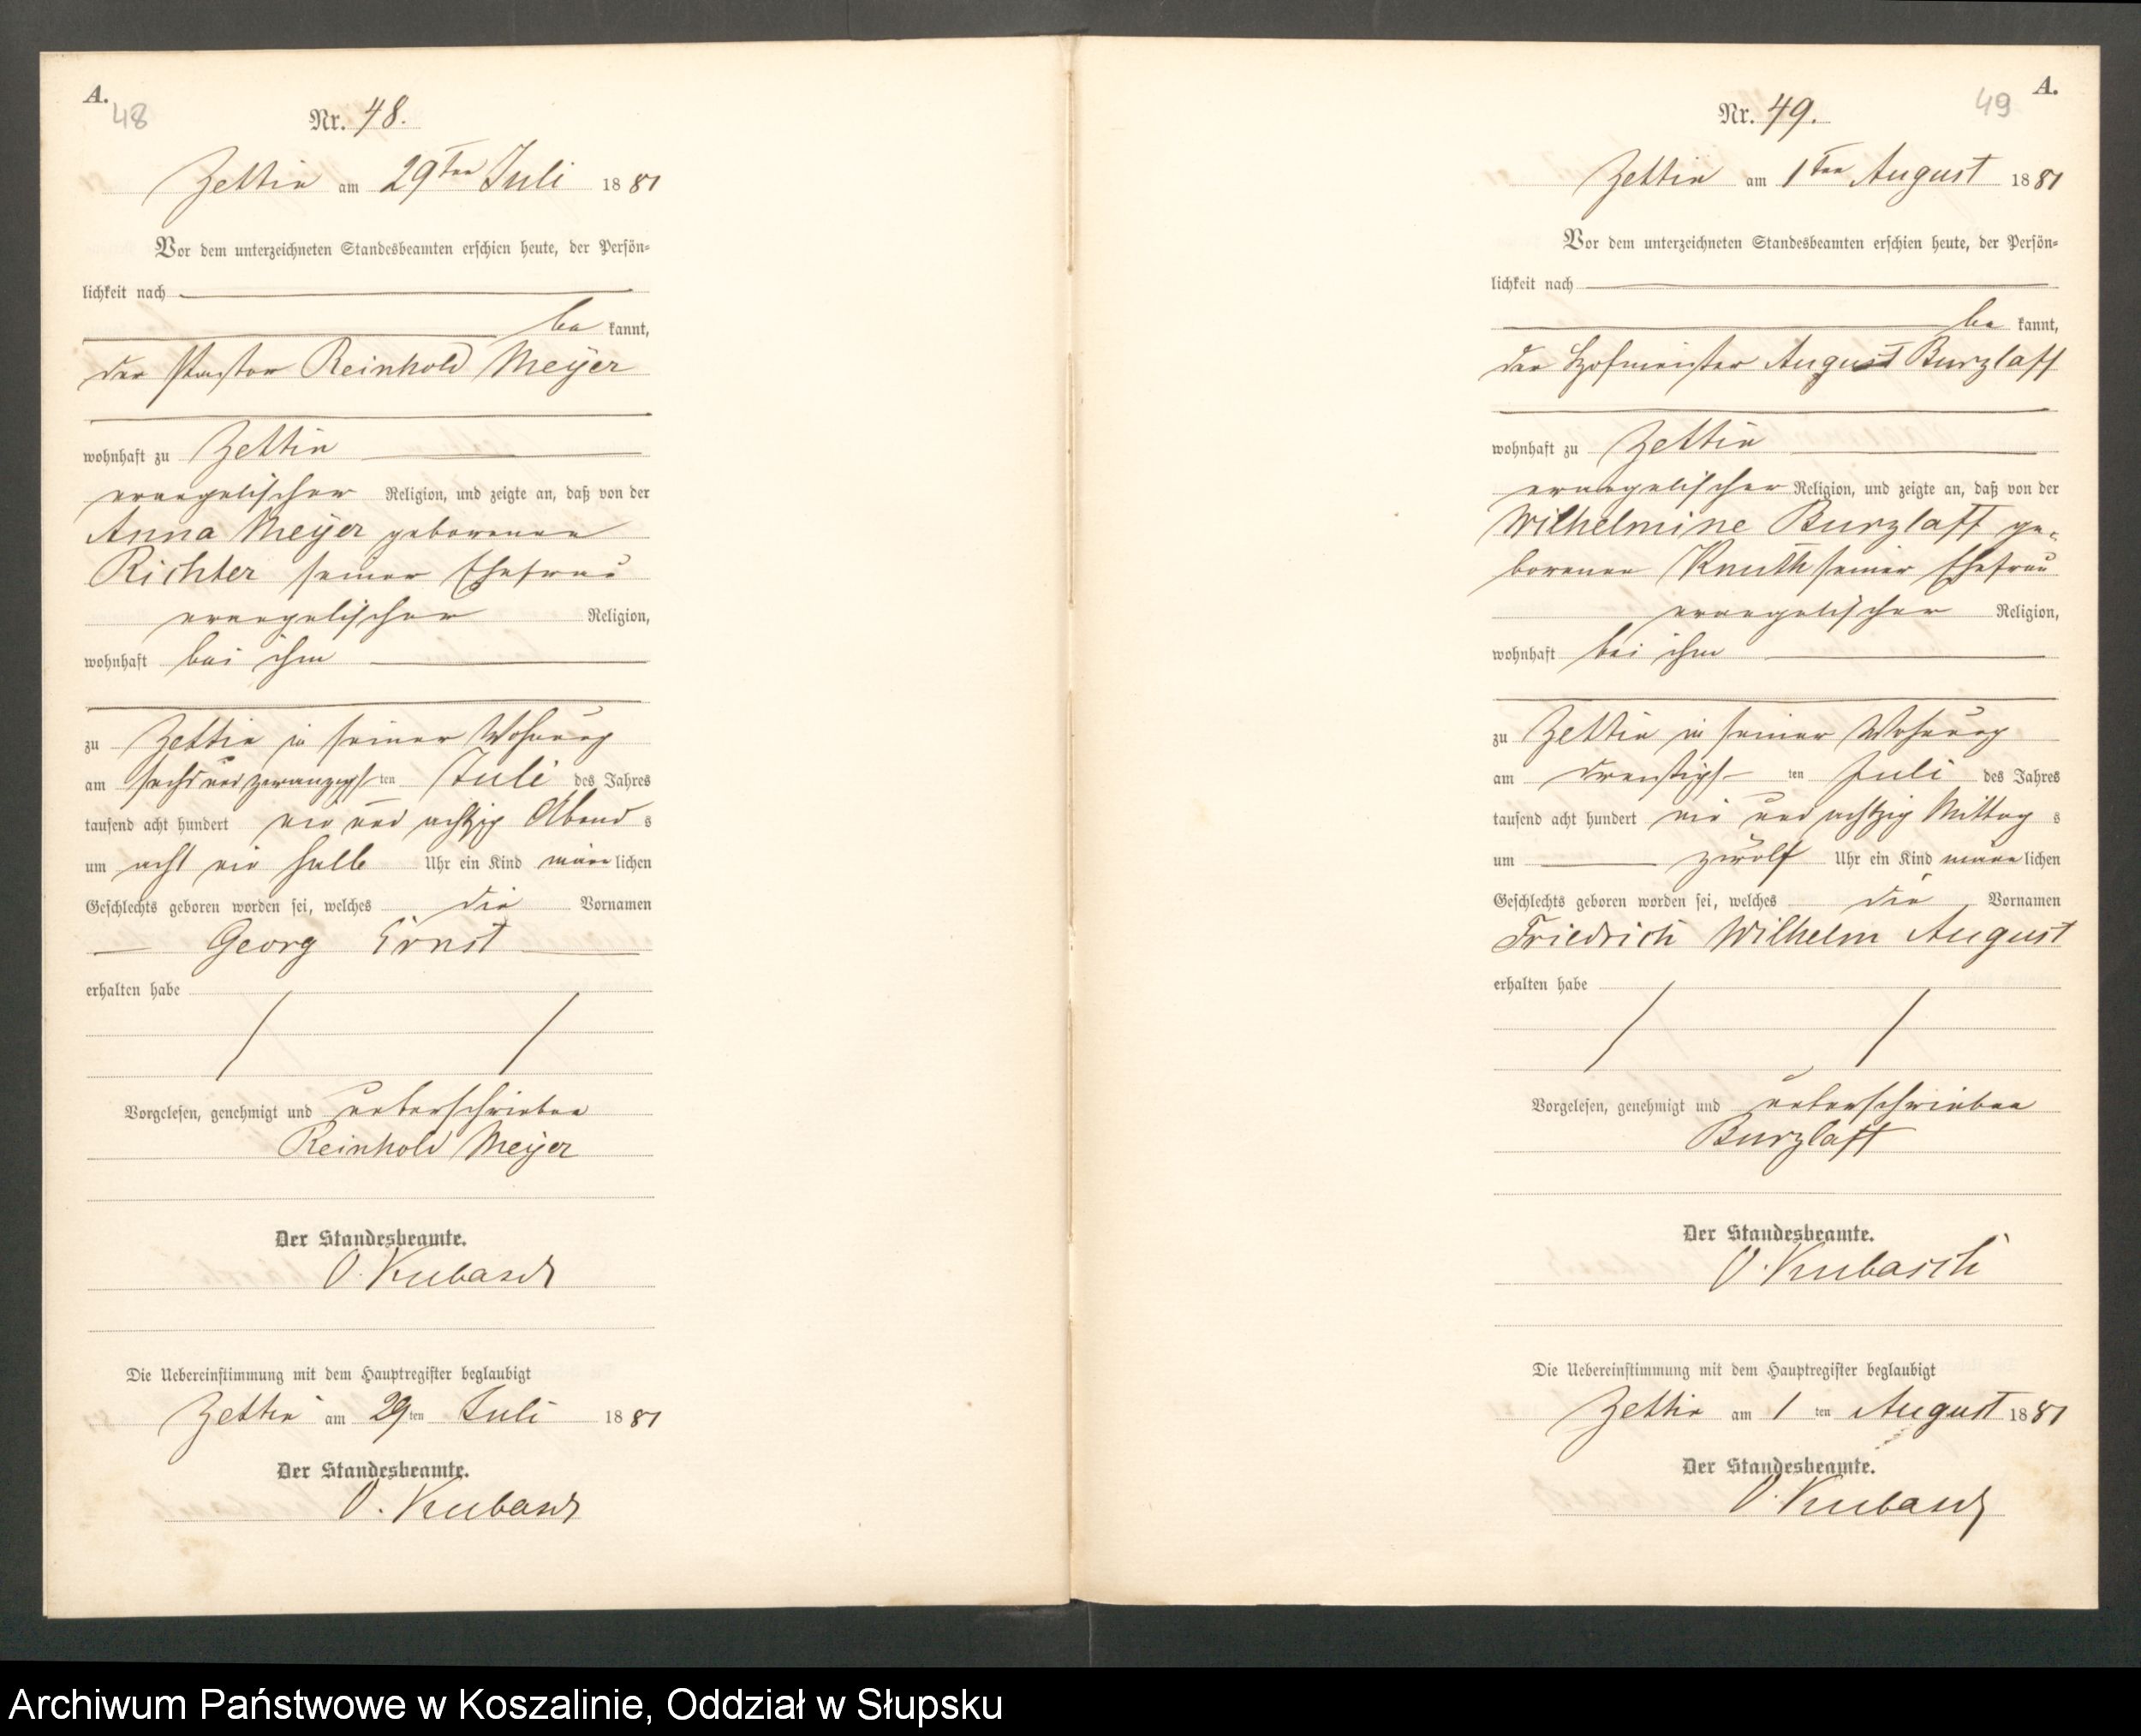 A.
48
Nr. 48.
Zettin am 29ten Juli 1881
Vor dem unterzeichneten Standesbeamten erschien heute, der Persön-
lichkeit nach
be kannt,
der Pastor Reinhold Meÿer
wohnhaft zu Zettin
evangelischer Religion, und zeigte an, daß von der
Anna Meÿer geborenen
Richter seiner Ehefrau
evangelischer Religion,
wohnhaft bei ihm
zu Zettin in seiner Wohnung
am sechs und zwanzigsten Juli des Jahres
tausend acht hundert ein und achtzig Abend s
um acht ein halb Uhr ein Kind männlichen
Geschlechts geboren worden sei, welches die Vornamen
Georg Ernst
erhalten habe
Vorgelesen, genehmigt und unterschrieben
Reinhold Meÿer
Der Standesbeamte.
O. Kubasch
Die Uebereinstimmung mit dem Hauptregister beglaubigt
Zettin am 29ten Juli 1881
Der Standesbeamte.
O. Kubasch
A.
49
Nr. 49.
Zettin am 1ten August 1881
Vor dem unterzeichneten Standesbeamten erschien heute, der Persön-
lichkeit nach
be kannt,
der Hofmeister August Burzlaff
wohnhaft zu Zettin
evangelischer Religion, und zeigte an, daß von der
Wilhelmine Burzlaff ge-
borenen Knuth seiner Ehefrau
evangelischer Religion,
wohnhaft bei ihm
zu Zettin in seiner Wohnung
am dreißigsten Juli des Jahres
tausend acht hundert ein und achtzig Mittag s
um zwölf Uhr ein Kind männlichen
Geschlechts geboren worden sei, welches die Vornamen
Friedrich Wilhelm August
erhalten habe
Vorgelesen, genehmigt und unterschrieben
Burzlaff
Der Standesbeamte.
O. Kubasch
Die Uebereinstimmung mit dem Hauptregister beglaubigt
Zettin am 1ten August 1881
Der Standesbeamte.
O. Kubasch
Archiwum Państwowe w Koszalinie, Oddział w Słupsku